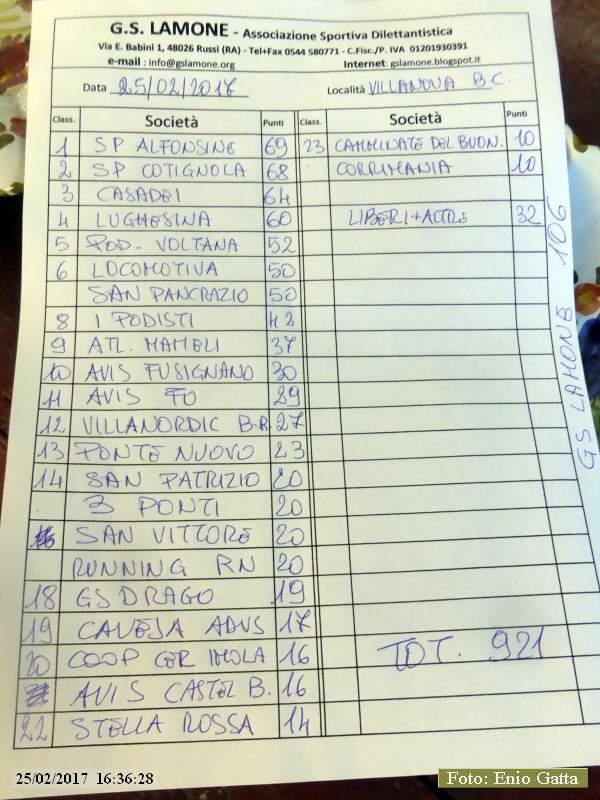 G.S. LAMONE - Associazione Sportiva Dilettantistica
Via E. Babini 1, 48026 Russi (RA) - Tel+Fax 0544 580771 - C.Fisc./P. IVA 01201930391
e-mail : info@gslamone.org Internet: gslamone.blogspot.it
Data 25/02/2017 Località VILLANOVA B.C.
Class. Società Punti Class. Società Punti
1 SP ALFONSINE 69 23 CAMMINATE DEL BUON. 10
2 SP COTIGNOLA 68 CORRIMANIA 10
3 CASADEI 64
4 LUGHESINA 60 LIBERI+ALTRE 32
5 POD. VOLTANA 52
6 LOCOMOTIVA 50
SAN PANCRAZIO 50
8 I PODISTI 42
9 ATL. MAMELI 37
10 AVIS FUSIGNANO 30
11 AVIS FO 29
12 VILLANORDIC B.R. 27
13 PONTE NUOVO 23
14 SAN PATRIZIO 20
3 PONTI 20
SAN VITTORE 20
RUNNING RN 20
18 GS DRAGO 19
19 CAVEJA ADVS 17
20 COOP CER IMOLA 16
AVIS CASTEL B. 16
22 STELLA ROSSA 14
TOT. 921
GS LAMONE 106
25/02/2017 16:36:28
Foto: Enio Gatta